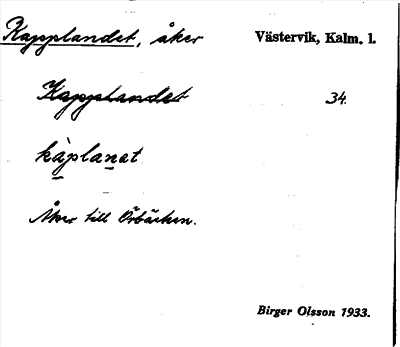 Kapplandet, åker Västervik, Kalm. l.
Kapplandet 34.
kàplanat
Åker till Örbäcken.
Birger Olsson 1933.